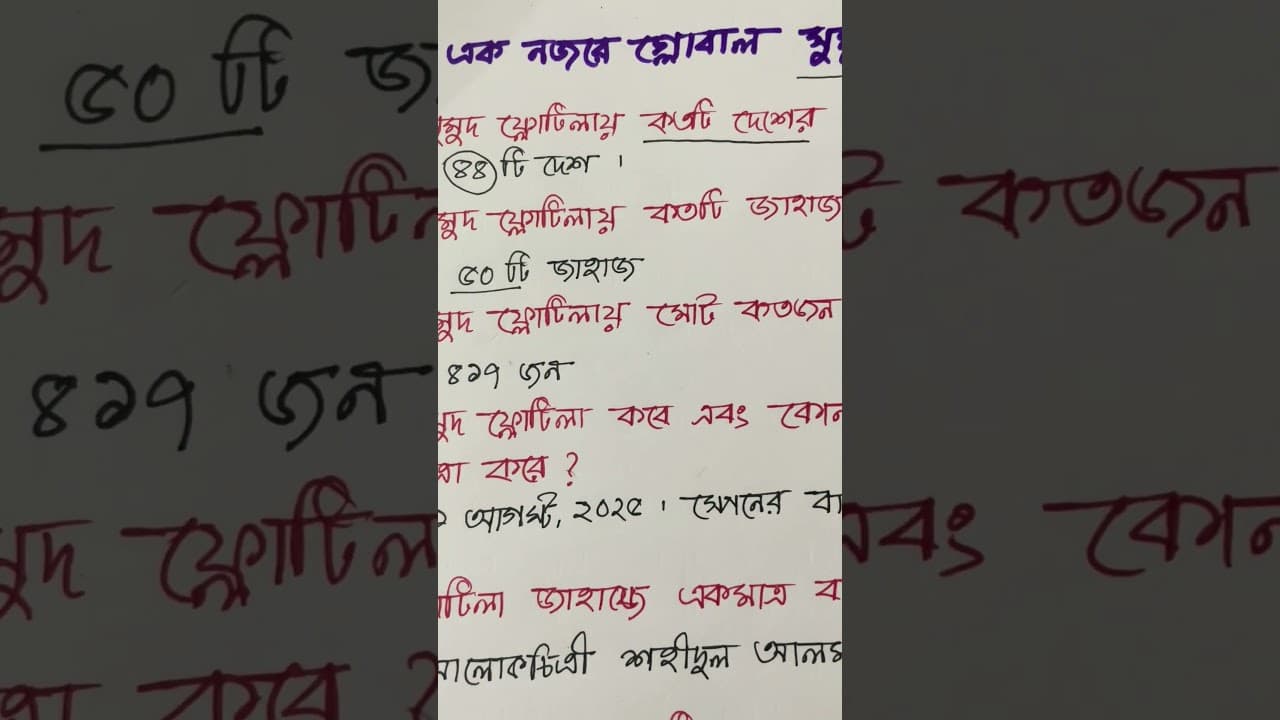 এক নজরে গ্লোবাল সুমু
মুদ ফ্লোটিলায় কতটি দেশের
৪৪টি দেশ ।
মুদ ফ্লোটিলায় কতটি জাহাজ
৫০ টি জাহাজ
মুদ ফ্লোটিলায় মোট কতজন
৪১৭ জন
মুদ ফ্লোটিলা কবে এবং কোন
করে ?
আগস্ট, ২০২৫ । স্পেনের বা
টিলা জাহাজে একমাত্র ব
আলোকচিত্রী শহীদুল আলম